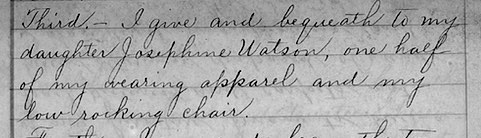 Third.— I give and bequeath to my
daughter Josephine Watson, one half
of my wearing apparel and my
low rocking chair.